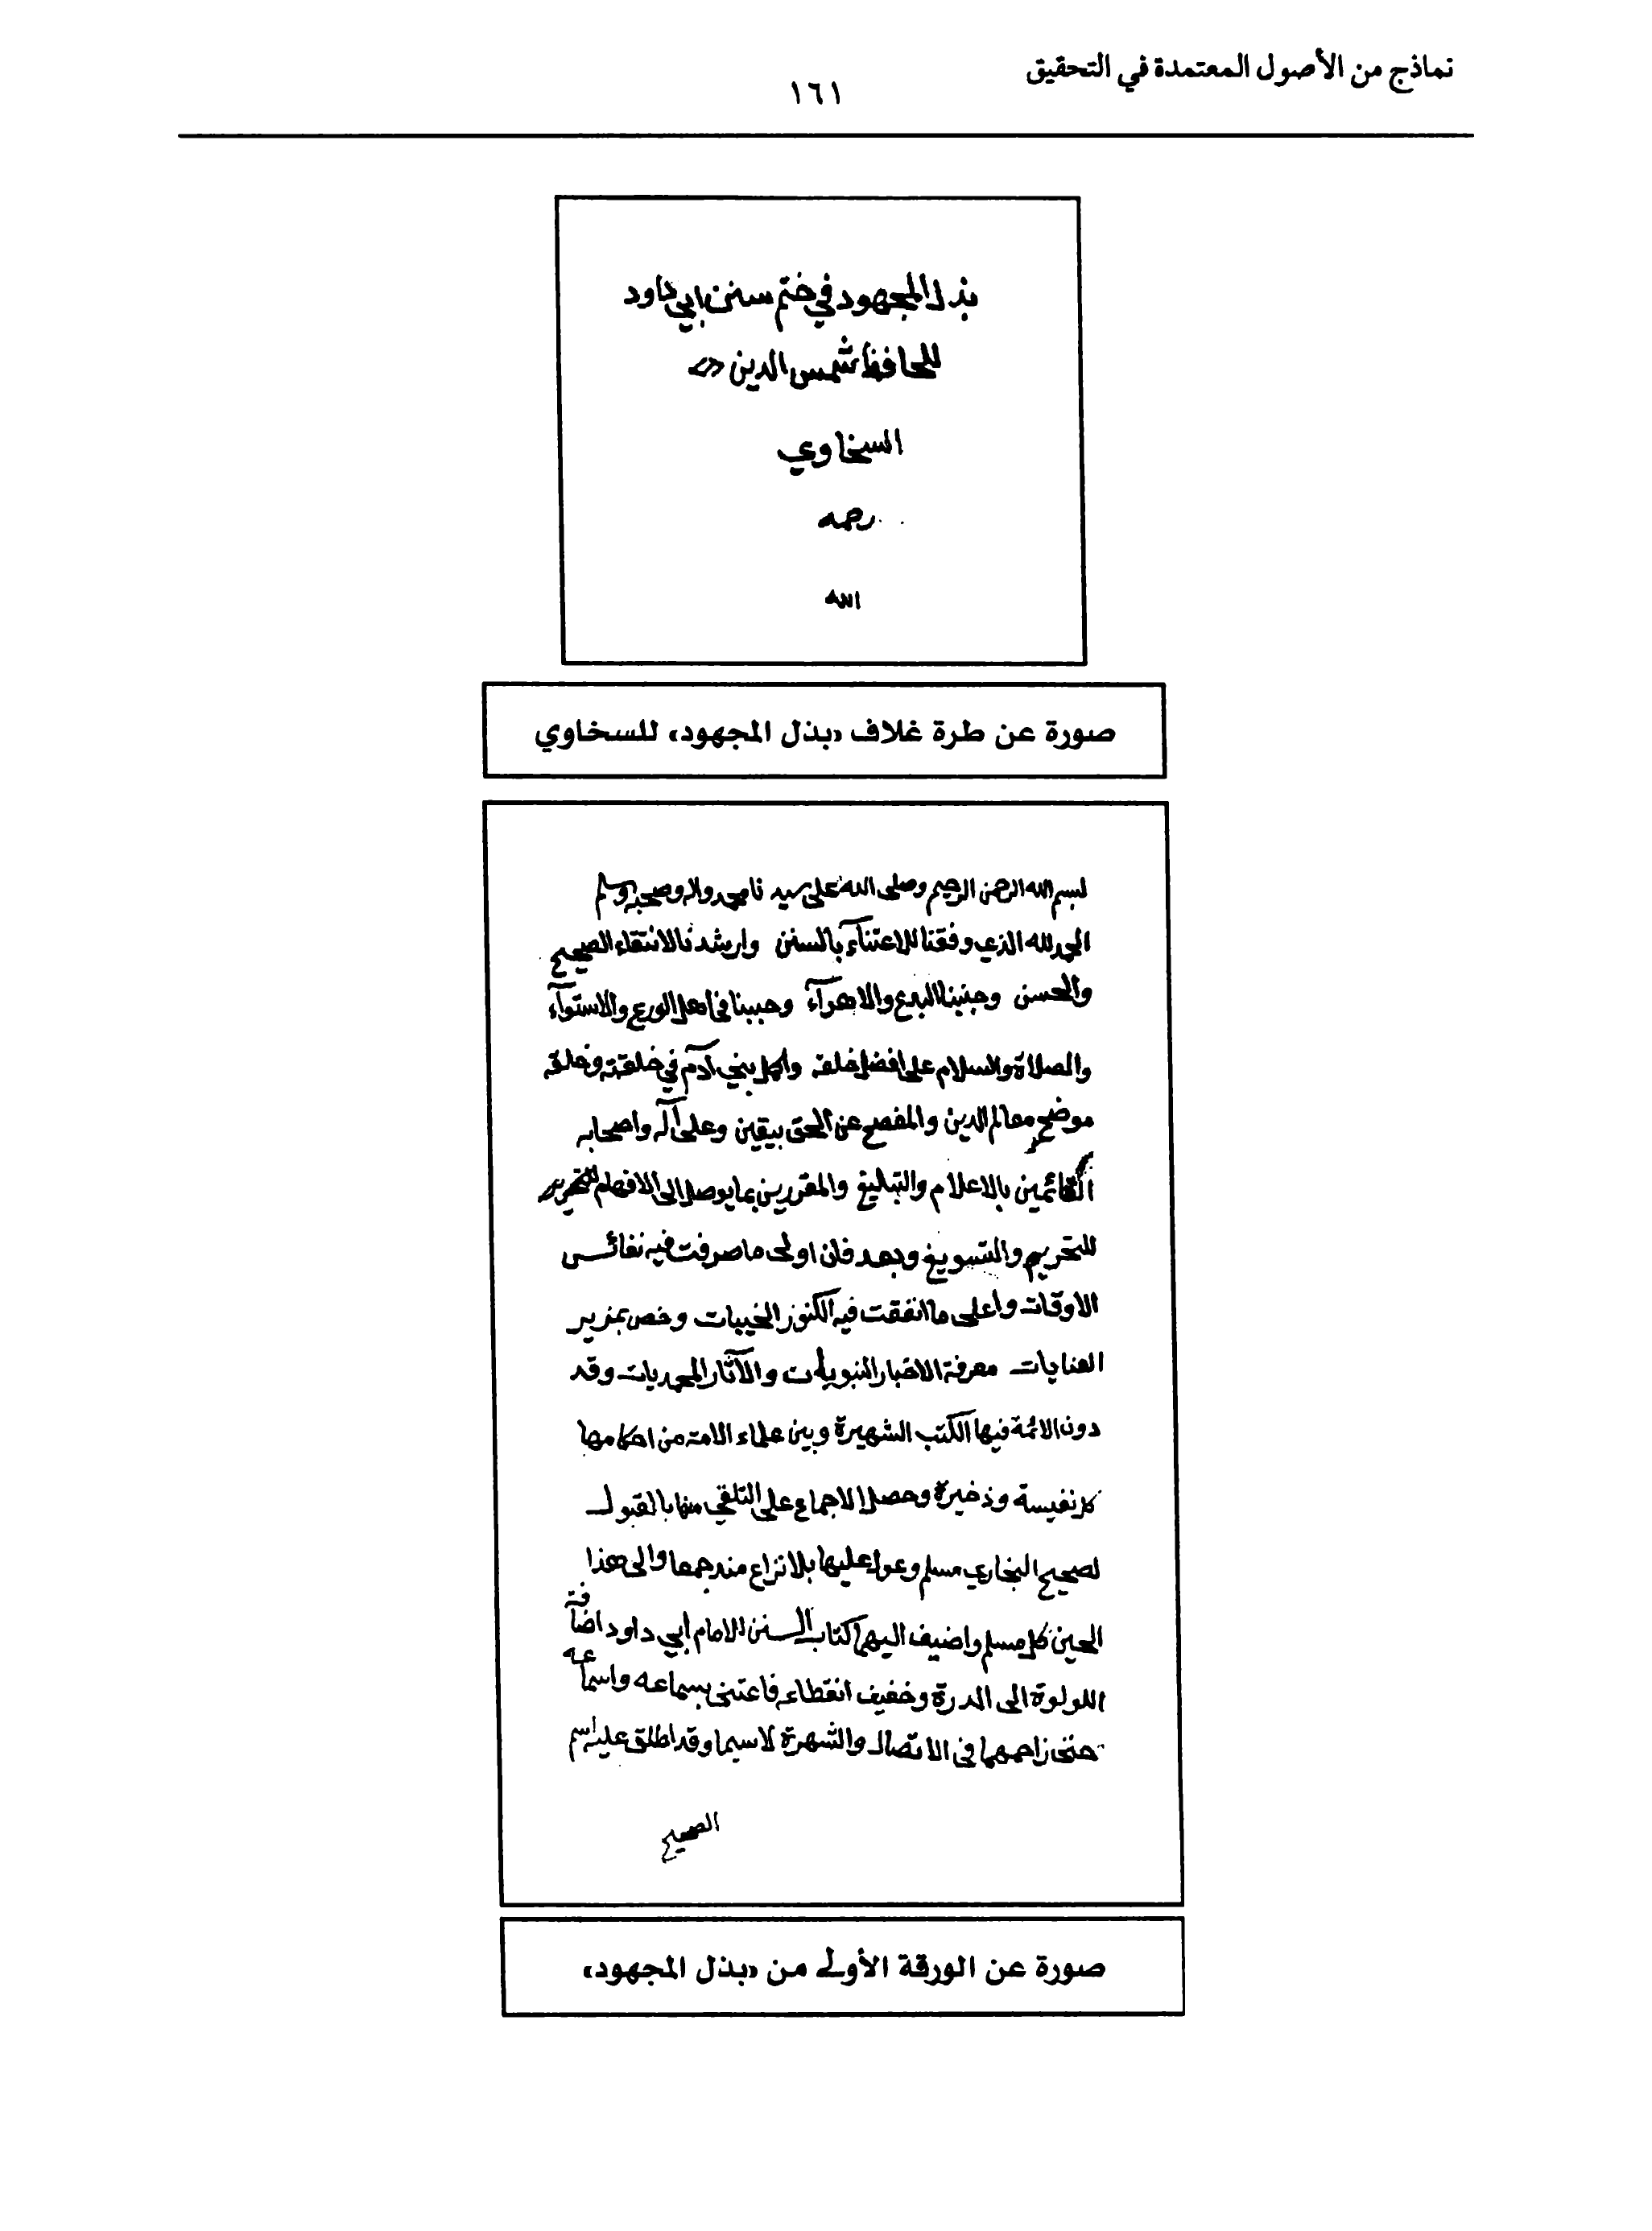 نماذج من الأصول المعتمدة في التحقيق
١٦١
بذل المجهود في ختم سنن ابي داود
للحافظ شمس الدين
السخاوي
رحمه
الله
صورة عن طرة غلاف «بذل المجهود» للسخاوي
بسم الله الرحمن الرحيم وصلى الله على سيد نا محمد واله وصحبه وسلم
الحمد لله الذي وفقنا للاعتنآء بالسنن وارشدنا لانتقاء الصحيح
والحسن وجنبنا البدع والاهوآء وحببنا في اهل الورع والاستوآء
والصلاة والسلام على افضل خلقه واكمل بني آدم في خلقته وخلقه
موضح معالم الدين والمفصح عن الحق بيقين وعلى آله واصحابه
القائمين بالاعلام والتبليغ والمقررين بما يوصل الى الافهام
للتحريم والتسويغ وبعد فان اولى ما صرفت فيه نفائس
الاوقات واعلى ما انفقت فيه الكنوز الخبيات وخص بمزير
العنايات معرفة الاخبار النبويات والآثار المحمديات وقد
دون الائمة فيها الكتب الشهيرة وبين علماء الامة من احكامها
كل نفيسة وذخيرة وحصل الاجماع على التلقي منها بالقبول
لصحيح البخاري مسلم وعول عليها بلا نزاع منذ جمعا والى هذا
الحين كل مسلم واضيف اليهما كتاب السنن للامام ابي داود اضافة
اللولوة الى الدرة وخفيف انقطاء فاعتنى بسماعه واسماعه
حتى زاحمهما في الاتصال والشهرة لاسيما وقد اطلق عليه اسم
الصحيح
صورة عن الورقة الأولى من «بذل المجهود»